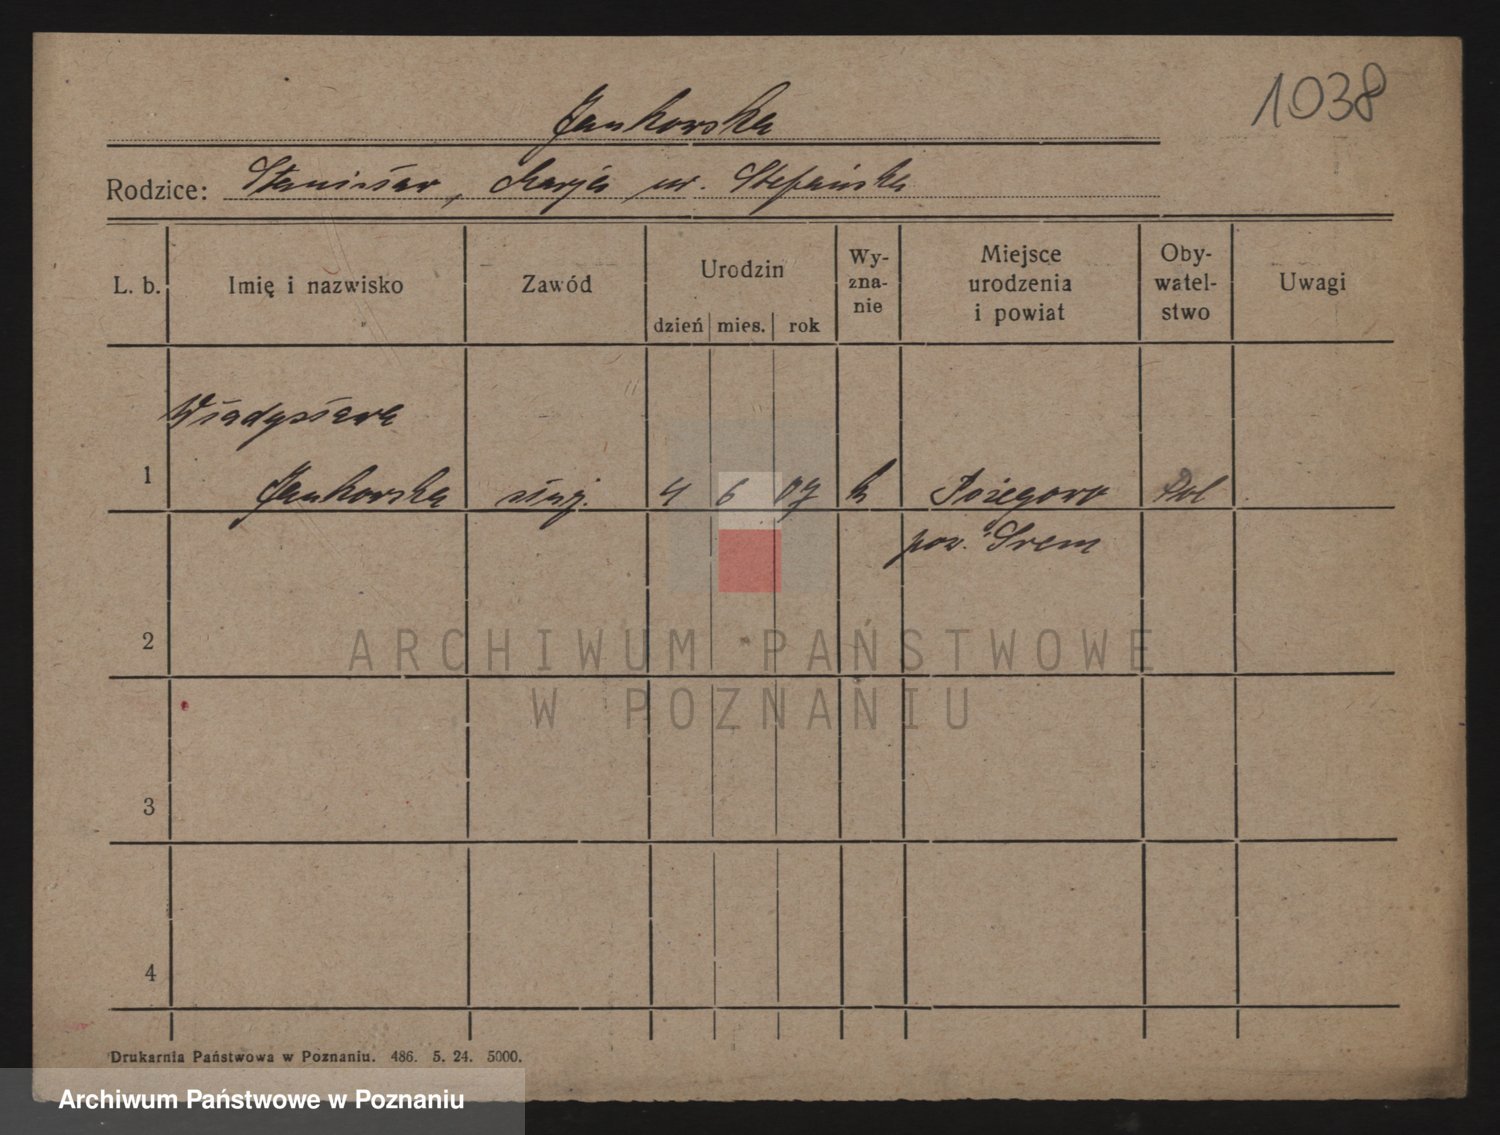 1038
Jankowska
Rodzice: Stanisław, Marja ur. Stefańska
L. b. Imię i nazwisko Zawód Urodzin dzień mies. rok Wy-zna-nie Miejsce urodzenia i powiat Oby-watel-stwo Uwagi
Władysława
1 Jankowska służ. 4 6 07 k Pożegowo Pol
pow. Śrem
2
ARCHIWUM PAŃSTWOWE
W POZNANIU
3
4
Drukarnia Państwowa w Poznaniu. 486. 5. 24. 5000.
Archiwum Państwowe w Poznaniu